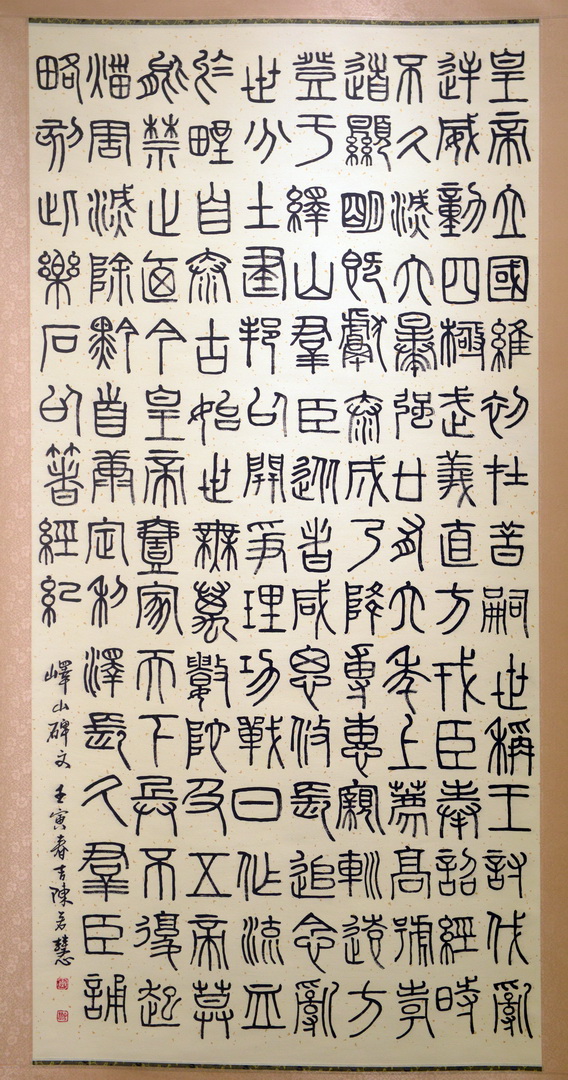 皇帝立國維初在昔嗣世稱王討伐亂
逆威動四極武義直方戎臣奉詔經時
不久滅六暴強廿有六年上薦高號孝
道顯明既獻泰成乃降專惠親巡遠方
登于繹山羣臣從者咸思攸長追念亂
世分土建邦以開爭理功戰日作流血
於野自泰古始世無萬數陀及五帝莫
能禁止廼今皇帝壹家天下兵不復起
災害滅除黔首康定利澤長久羣臣誦
略刻此樂石以著經紀
嶧山碑文 壬寅春吉陳若慧